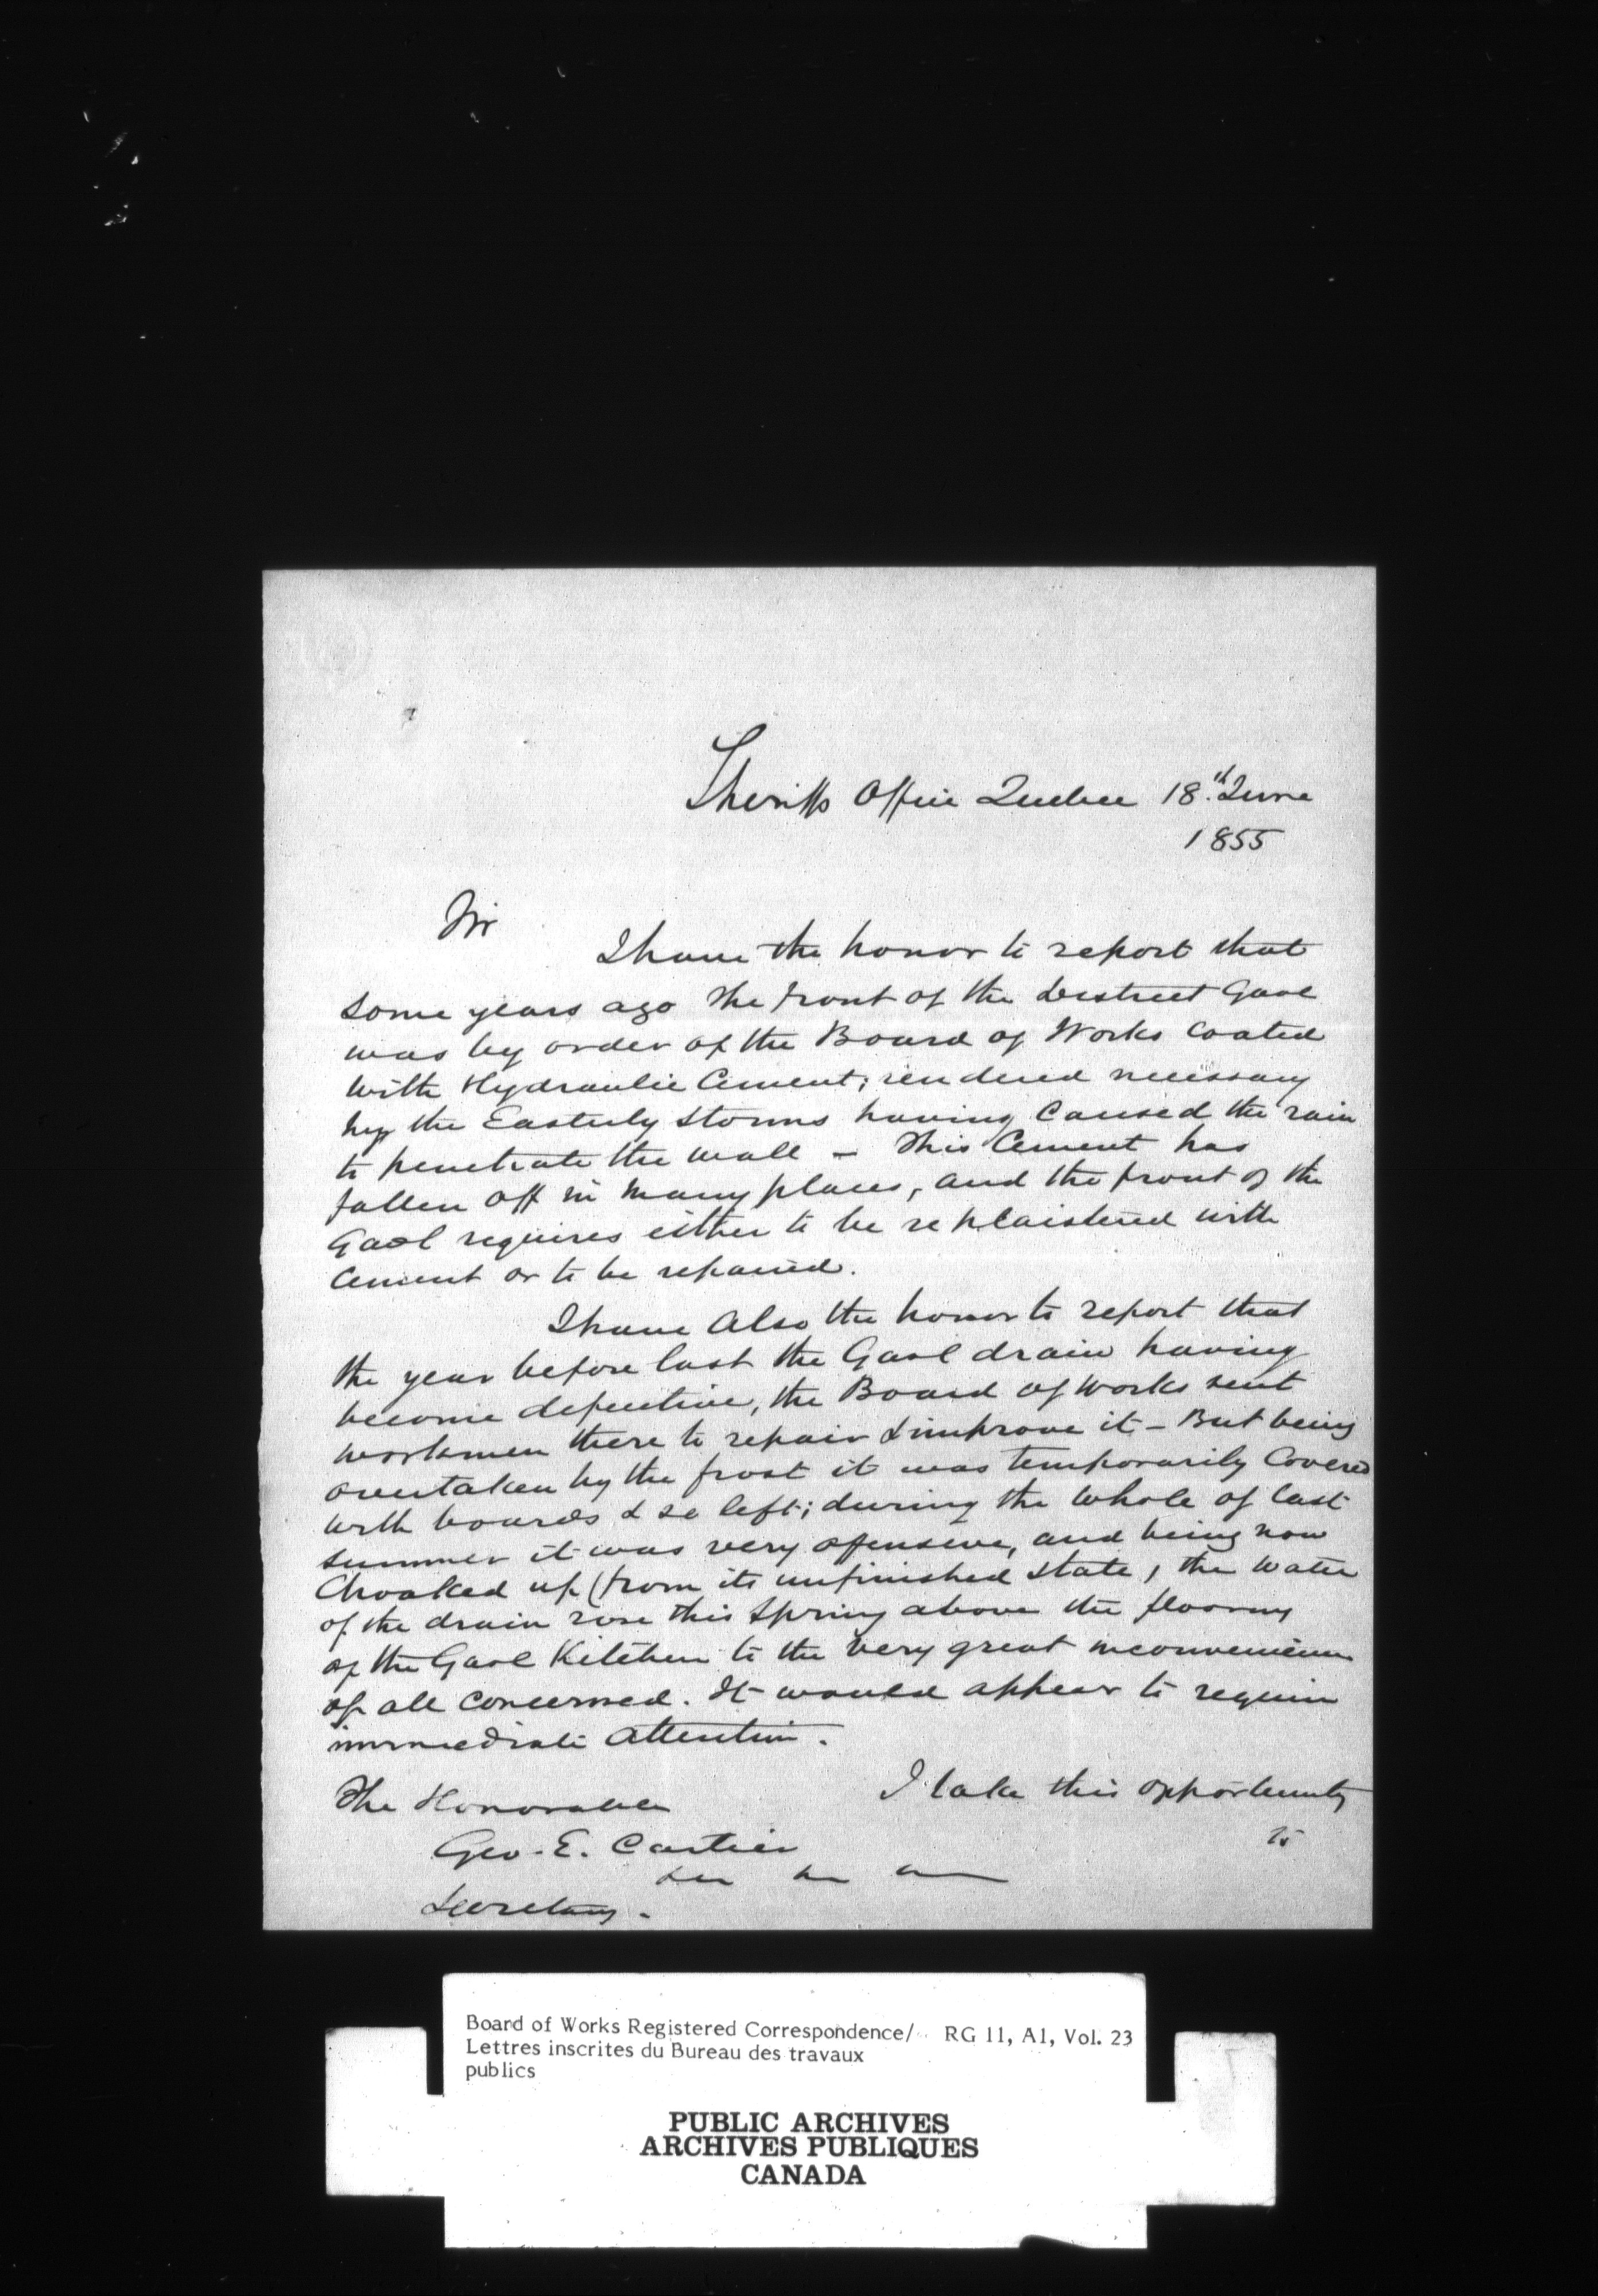 Sheriffs Office Quebec 18.th June
1855
Sir
I have the honor to report that
some years ago the front of the District Gaol
was by order of the Board of Works Coated
with Hydraulic Cement, rendered necessary
by the Easterly Storms having Caused the rain
to penetrate the wall – This Cement has
fallen off in many places, and the front of the
Gaol requires either to be replaistered with
Cement or to be repaired.
I have Also the honor to report that
the year before last the Gaol drain having
become defective, the Board of Works sent
workmen there to repair & improve it – But being
overtaken by the frost it was temporarily Covered
with boards & so left; during the whole of last
summer it was very offensive, and being now
Choaked up (from its unfinished state) the water
of the drain rose this Spring above the flooring
of the Gaol Kitchen to the very great inconvenience
of all concerned. It would appear to require
immediate Attention.
I take this opportunity
to
The Honorable
Geo. E. Cartier
Secretary.
Board of Works Registered Correspondence/ RG 11, A1, Vol. 23
Lettres inscrites du Bureau des travaux
publics
PUBLIC ARCHIVES
ARCHIVES PUBLIQUES
CANADA